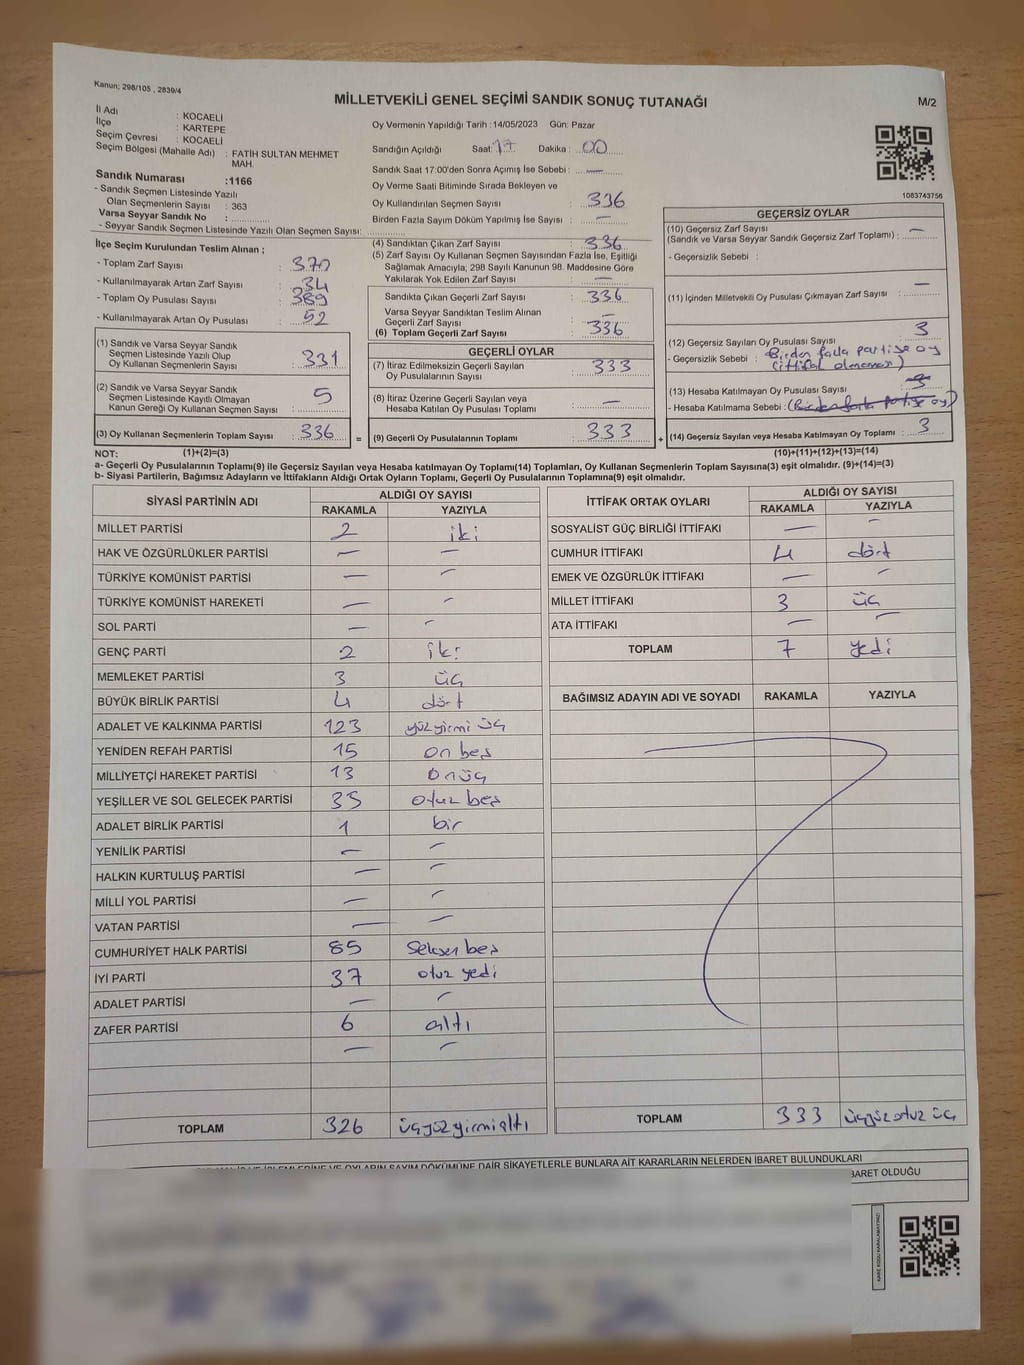 Kanun; 298/105 , 2839/4
MİLLETVEKİLİ GENEL SEÇİMİ SANDIK SONUÇ TUTANAĞI
M/2
İl Adı : KOCAELİ
İlçe : KARTEPE
Seçim Çevresi : KOCAELİ
Seçim Bölgesi (Mahalle Adı) : FATİH SULTAN MEHMET MAH.
Sandık Numarası :1166
- Sandık Seçmen Listesinde Yazılı
Olan Seçmenlerin Sayısı : 363
Varsa Seyyar Sandık No : ..............
- Seyyar Sandık Seçmen Listesinde Yazılı Olan Seçmen Sayısı: ..............
Oy Vermenin Yapıldığı Tarih :14/05/2023 Gün: Pazar
Sandığın Açıldığı Saat: 17 Dakika : 00
Sandık Saat 17:00'den Sonra Açımış İse Sebebi : —
Oy Verme Saati Bitiminde Sırada Bekleyen ve
Oy Kullandırılan Seçmen Sayısı : 336
Birden Fazla Sayım Döküm Yapılmış İse Sayısı : —
1083743756
İlçe Seçim Kurulundan Teslim Alınan ;
- Toplam Zarf Sayısı : 370
- Kullanılmayarak Artan Zarf Sayısı : 34
- Toplam Oy Pusulası Sayısı : 389
- Kullanılmayarak Artan Oy Pusulası : 52
(1) Sandık ve Varsa Seyyar Sandık
Seçmen Listesinde Yazılı Olup
Oy Kullanan Seçmenlerin Sayısı : 331
(2) Sandık ve Varsa Seyyar Sandık
Seçmen Listesinde Kayıtlı Olmayan
Kanun Gereği Oy Kullanan Seçmen Sayısı : 5
(3) Oy Kullanan Seçmenlerin Toplam Sayısı : 336 =
(4) Sandıktan Çıkan Zarf Sayısı : 336
(5) Zarf Sayısı Oy Kullanan Seçmen Sayısından Fazla İse, Eşitliği
Sağlamak Amacıyla, 298 Sayılı Kanunun 98. Maddesine Göre
Yakılarak Yok Edilen Zarf Sayısı : —
Sandıkta Çıkan Geçerli Zarf Sayısı : 336
Varsa Seyyar Sandıktan Teslim Alınan
Geçerli Zarf Sayısı : —
(6) Toplam Geçerli Zarf Sayısı : 336
GEÇERLİ OYLAR
(7) İtiraz Edilmeksizin Geçerli Sayılan
Oy Pusulalarının Sayısı : 333
(8) İtiraz Üzerine Geçerli Sayılan veya
Hesaba Katılan Oy Pusulası Toplamı : —
(9) Geçerli Oy Pusulalarının Toplamı : 333 +
GEÇERSİZ OYLAR
(10) Geçersiz Zarf Sayısı
(Sandık ve Varsa Seyyar Sandık Geçersiz Zarf Toplamı) : —
- Geçersizlik Sebebi :
(11) İçinden Milletvekili Oy Pusulası Çıkmayan Zarf Sayısı : —
(12) Geçersiz Sayılan Oy Pusulası Sayısı : 3
- Geçersizlik Sebebi : (Birden fazla partiye oy
(ittifak olmama)
(13) Hesaba Katılmayan Oy Pusulası Sayısı : 3
- Hesaba Katılmama Sebebi : (Birden fazla partiye oy)
(14) Geçersiz Sayılan veya Hesaba Katılmayan Oy Toplamı : 3
NOT: (1)+(2)=(3)
(10)+(11)+(12)+(13)=(14)
a- Geçerli Oy Pusulalarının Toplamı(9) ile Geçersiz Sayılan veya Hesaba katılmayan Oy Toplamı(14) Toplamları, Oy Kullanan Seçmenlerin Toplam Sayısına(3) eşit olmalıdır. (9)+(14)=(3)
b- Siyasi Partilerin, Bağımsız Adayların ve İttifakların Aldığı Ortak Oyların Toplamı, Geçerli Oy Pusulalarının Toplamına(9) eşit olmalıdır.
SİYASİ PARTİNİN ADI ALDIĞI OY SAYISI
RAKAMLA YAZIYLA
MİLLET PARTİSİ 2 iki
HAK VE ÖZGÜRLÜKLER PARTİSİ — —
TÜRKİYE KOMÜNİST PARTİSİ — —
TÜRKİYE KOMÜNİST HAREKETİ — —
SOL PARTİ — —
GENÇ PARTİ 2 iki
MEMLEKET PARTİSİ 3 üç
BÜYÜK BİRLİK PARTİSİ 4 dört
ADALET VE KALKINMA PARTİSİ 123 yüzyirmi üç
YENİDEN REFAH PARTİSİ 15 on beş
MİLLİYETÇİ HAREKET PARTİSİ 13 onüç
YEŞİLLER VE SOL GELECEK PARTİSİ 35 otuz beş
ADALET BİRLİK PARTİSİ 1 bir
YENİLİK PARTİSİ — —
HALKIN KURTULUŞ PARTİSİ — —
MİLLİ YOL PARTİSİ — —
VATAN PARTİSİ — —
CUMHURİYET HALK PARTİSİ 85 seksen beş
İYİ PARTİ 37 otuz yedi
ADALET PARTİSİ — —
ZAFER PARTİSİ 6 altı
— —
TOPLAM 326 üçyüz yirmialtı
İTTİFAK ORTAK OYLARI ALDIĞI OY SAYISI
RAKAMLA YAZIYLA
SOSYALİST GÜÇ BİRLİĞİ İTTİFAKI — —
CUMHUR İTTİFAKI 4 dört
EMEK VE ÖZGÜRLÜK İTTİFAKI — —
MİLLET İTTİFAKI 3 üç
ATA İTTİFAKI — —
TOPLAM 7 yedi
BAĞIMSIZ ADAYIN ADI VE SOYADI RAKAMLA YAZIYLA
TOPLAM 333 üçyüz otuz üç
OYLARIN SAYIM DÖKÜMÜNE DAİR ŞİKAYETLERLE BUNLARA AİT KARARLARIN NELERDEN İBARET BULUNDUKLARI
İBARET OLDUĞU
KARE KODU KARALAMAYINIZ!